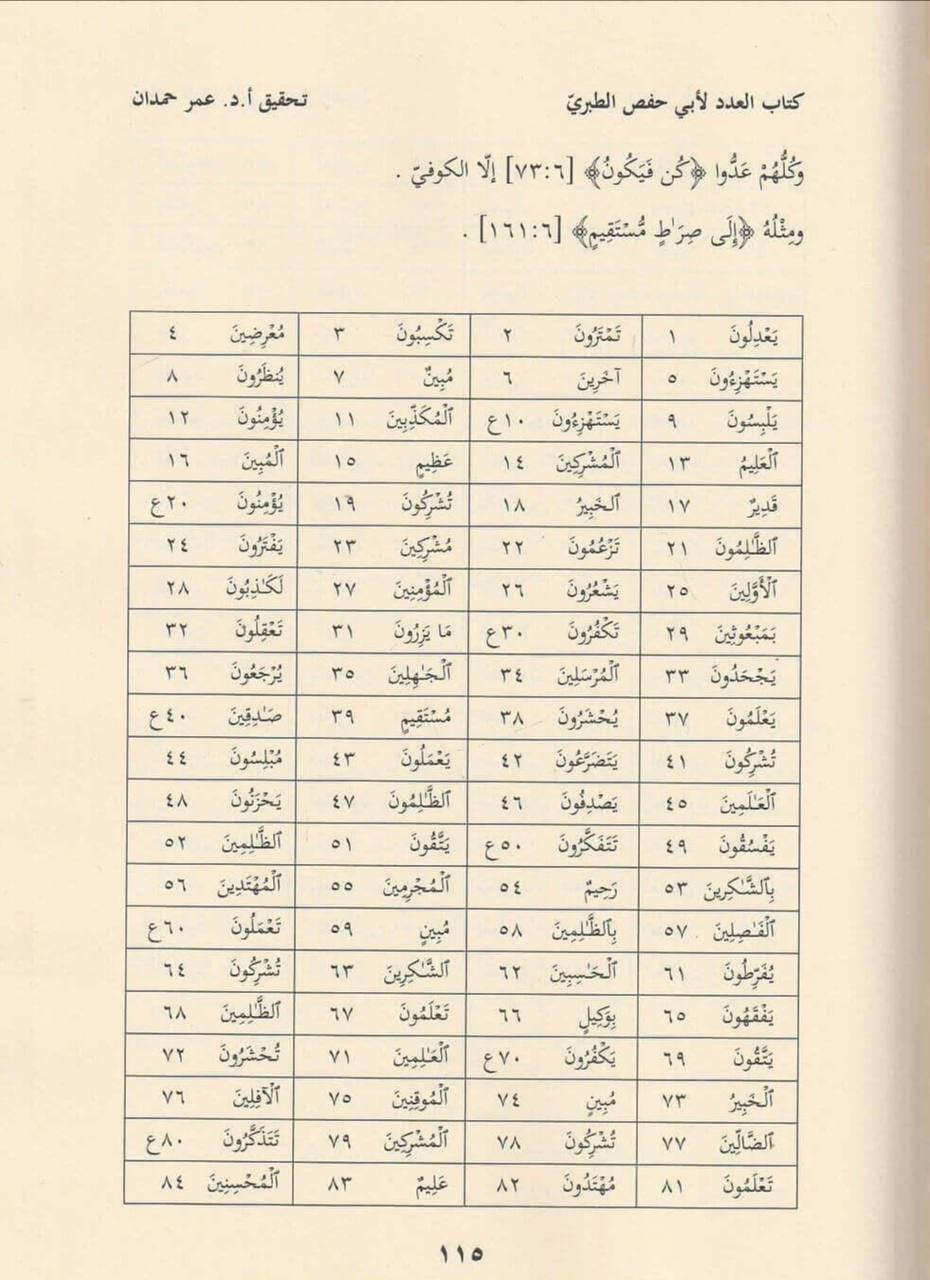 كتاب العدد لأبي حفص الطبريّ تحقيق أ.د. عمر حمدان
وَكُلُّهُمْ عَدُّوا ﴿كُن فَيَكُونُ﴾ [٧٣:٦] إلّا الكوفيّ .
ومِثْلُهُ ﴿إِلَى صِرَٰطٍ مُّسْتَقِيمٍ﴾ [١٦١:٦] .
يَعْدِلُونَ ١ تَمْتَرُونَ ٢ تَكْسِبُونَ ٣ مُعْرِضِينَ ٤
يَسْتَهْزِءُونَ ٥ آخَرِينَ ٦ مُبِينٌ ٧ يُنظَرُونَ ٨
يَلْبِسُونَ ٩ يَسْتَهْزِءُونَ ١٠ع ٱلْمُكَذِّبِينَ ١١ يُؤْمِنُونَ ١٢
ٱلْعَلِيمُ ١٣ ٱلْمُشْرِكِينَ ١٤ عَظِيمٍ ١٥ ٱلْمُبِينَ ١٦
قَدِيرٌ ١٧ ٱلْخَبِيرُ ١٨ تُشْرِكُونَ ١٩ يُؤْمِنُونَ ٢٠ع
ٱلظَّٰلِمُونَ ٢١ تَزْعُمُونَ ٢٢ مُشْرِكِينَ ٢٣ يَفْتَرُونَ ٢٤
ٱلْأَوَّلِينَ ٢٥ يَشْعُرُونَ ٢٦ ٱلْمُؤْمِنِينَ ٢٧ لَكَٰذِبُونَ ٢٨
بِمَبْعُوثِينَ ٢٩ تَكْفُرُونَ ٣٠ع مَا يَزِرُونَ ٣١ تَعْقِلُونَ ٣٢
يَجْحَدُونَ ٣٣ ٱلْمُرْسَلِينَ ٣٤ ٱلْجَٰهِلِينَ ٣٥ يُرْجَعُونَ ٣٦
يَعْلَمُونَ ٣٧ يُحْشَرُونَ ٣٨ مُسْتَقِيمٍ ٣٩ صَٰدِقِينَ ٤٠ع
تُشْرِكُونَ ٤١ يَتَضَرَّعُونَ ٤٢ يَعْمَلُونَ ٤٣ مُبْلِسُونَ ٤٤
ٱلْعَٰلَمِينَ ٤٥ يَصْدِفُونَ ٤٦ ٱلظَّٰلِمُونَ ٤٧ يَحْزَنُونَ ٤٨
يَفْسُقُونَ ٤٩ تَتَفَكَّرُونَ ٥٠ع يَتَّقُونَ ٥١ ٱلظَّٰلِمِينَ ٥٢
بِٱلشَّٰكِرِينَ ٥٣ رَحِيمٌ ٥٤ ٱلْمُجْرِمِينَ ٥٥ ٱلْمُهْتَدِينَ ٥٦
ٱلْفَٰصِلِينَ ٥٧ بِٱلظَّٰلِمِينَ ٥٨ مُبِينٍ ٥٩ تَعْمَلُونَ ٦٠ع
يُفَرِّطُونَ ٦١ ٱلْحَٰسِبِينَ ٦٢ ٱلشَّٰكِرِينَ ٦٣ تُشْرِكُونَ ٦٤
يَفْقَهُونَ ٦٥ بِوَكِيلٍ ٦٦ تَعْلَمُونَ ٦٧ ٱلظَّٰلِمِينَ ٦٨
يَتَّقُونَ ٦٩ يَكْفُرُونَ ٧٠ع ٱلْعَٰلَمِينَ ٧١ تُحْشَرُونَ ٧٢
ٱلْخَبِيرُ ٧٣ مُبِينٍ ٧٤ ٱلْمُوقِنِينَ ٧٥ ٱلْآفِلِينَ ٧٦
ٱلضَّالِّينَ ٧٧ تُشْرِكُونَ ٧٨ ٱلْمُشْرِكِينَ ٧٩ تَتَذَكَّرُونَ ٨٠ع
تَعْلَمُونَ ٨١ مُهْتَدُونَ ٨٢ عَلِيمٌ ٨٣ ٱلْمُحْسِنِينَ ٨٤
١١٥